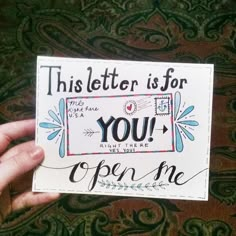 This letter is for
U.S.A
YOU!
RIGHT THERE
YES, YOU!
Open Me